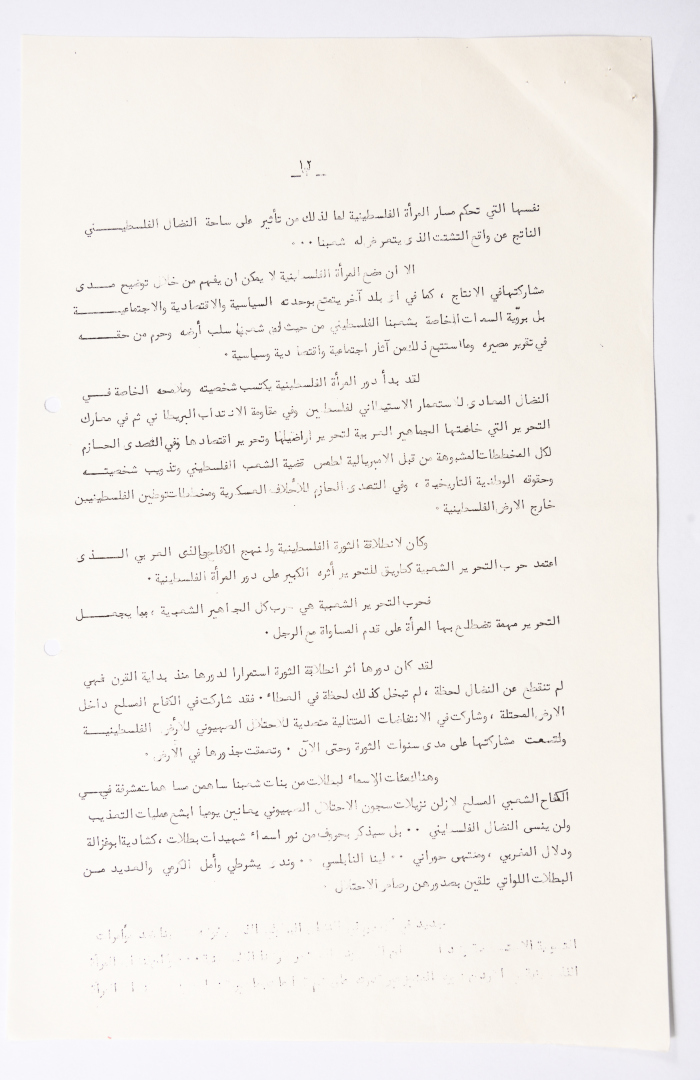 ١٢
نفسها التي تحكم مسار المرأة الفلسطينية لما لذلك من تأثير على ساحة النضال الفلسطيني
الناتج عن واقع التشتت الذي يتعرض له شعبنا ...
الا ان وضع المرأة الفلسطينية لا يمكن ان يفهم من خلال توضيح مدى
مشاركتها في الانتاج ، كما في اي بلد آخر يتمتع بوحدته السياسية والاقتصادية والاجتماعية
بل برؤية السمات الخاصة بشعبنا الفلسطيني من حيث شعبها سلب أرضه وحرم من حقه
في تقرير مصيره وما استتبع ذلك من آثار اجتماعية واقتصادية وسياسية .
لقد بدأ دور المرأة الفلسطينية يكتسب شخصيته وملامحه الخاصة في
النضال المعادي للاستعمار الاستيطاني لفلسطين وفي مقاومة الانتداب البريطاني ثم في معارك
التحرير التي خاضتها الجماهير العربية لتحرير اراضيها وتحرير اقتصادها وفي التصدي الحازم
لكل المخططات المشبوهة من قبل الامبريالية لطمس قضية الشعب الفلسطيني وتذويب شخصيته
وحقوقه الوطنية التاريخية ، وفي التصدي الحازم للأحلاف العسكرية ومخططات توطين الفلسطينيين
خارج الارض الفلسطينية .
وكان لانطلاقة الثورة الفلسطينية ولنهج الكفاحي الذي العربي الذي
اعتمد حرب التحرير الشعبية كطريق للتحرير أثره الكبير على دور المرأة الفلسطينية .
فحرب التحرير الشعبية هي حرب كل الجماهير الشعبية ، مما يجعل
التحرير مهمة تضطلع بها المرأة على قدم المساواة مع الرجل .
لقد كان دورها اثر انطلاقة الثورة استمرارا لدورها منذ بداية القرن فهي
لم تنقطع عن النضال لحظة ، لم تبخل كذلك لحظة في العطاء . فقد شاركت في الكفاح المسلح داخل
الارض المحتلة ، وشاركت في الانتفاضات المتتالية متصدية للاحتلال الصهيوني للأرض الفلسطينية
ولتسعت مشاركتها على مدى سنوات الثورة وحتى الآن . وتعمقت جذورها في الارض .
وهنالك مئات الاسماء لبطلات من بنات شعبنا ساهمن مساهمات مشرفة في
الكفاح الشعبي المسلح لازلن نزيلات سجون الاحتلال الصهيوني يعانين يوميا ابشع عمليات التعذيب
ولن ينسى النضال الفلسطيني .. بل سيذكر بحروف من نور اسماء شهيدات بطلات ، كشادية ابو غزالة
ودلال المغربي ، ومنتهى حوراني .. لينا النابلسي .. وندى يشرطي وأمل الكرمي والعديد من
البطلات اللواتي تلقين بصدورهن رصاص الاحتلال .